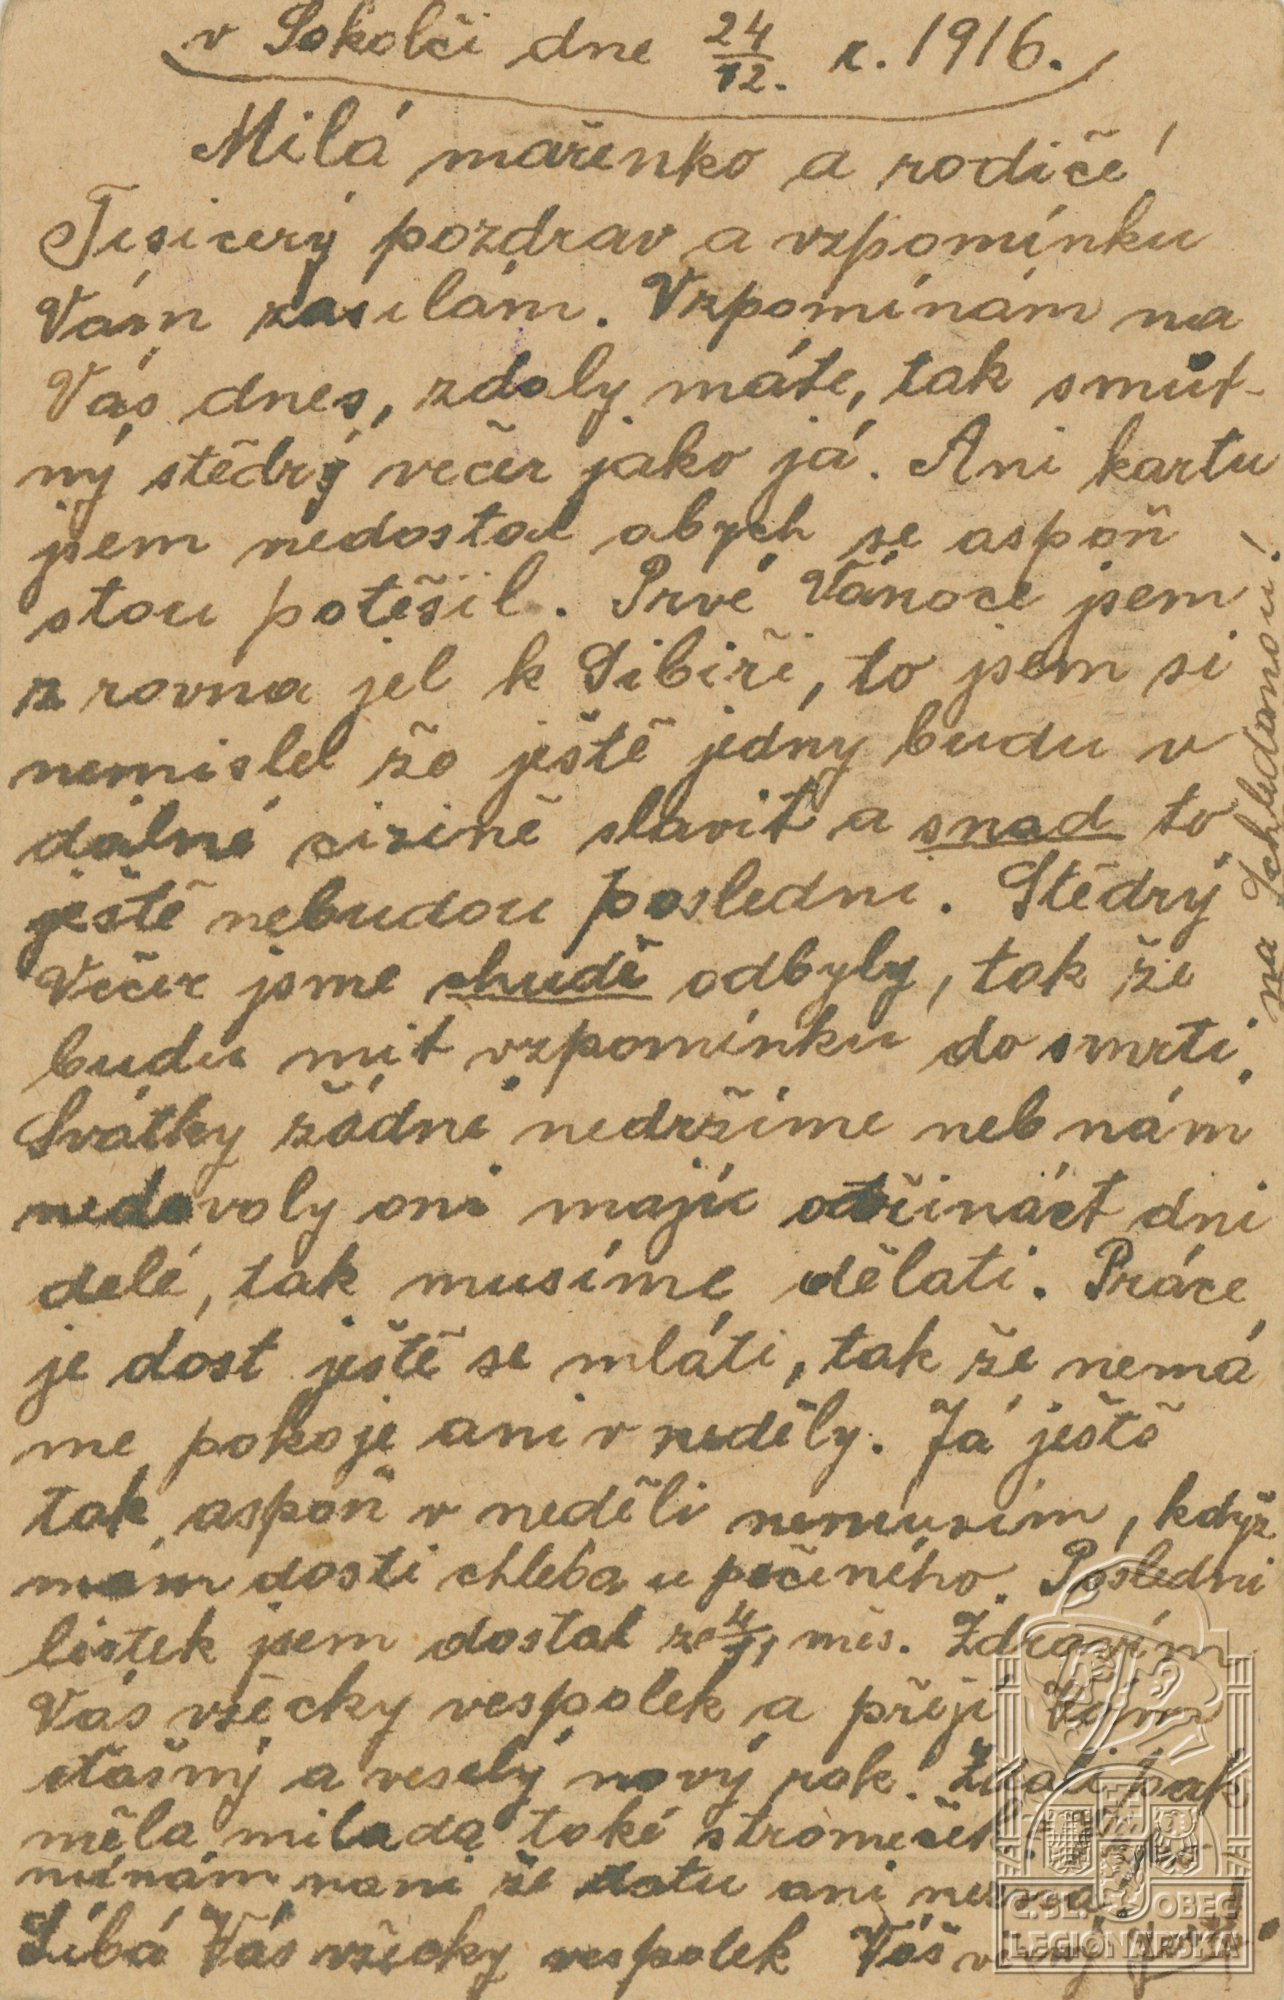 v Sokolči dne 24/12. r. 1916.
Milá mařenko a rodiče!
Tisicerý pozdrav a vzpomínku
Vám zasilám. Vzpomínám na
Vás dnes, zdaly máte, tak smut-
ný stědrý večer jako já. Ani kartu
jsem nedostal abych se aspoň
stou potěšil. Prvé Vánoce jsem
z rovna jel k Sibiři, to jsem si
nemislel že ještě jedny budu v
dálné cizině slavit a snad to
ještě nebudou posledni. Stědrý
Večer jsme chudě odbyly, tak že
budu mit vzpomínku do smrti.
Svátky žádné nedržíme neb nám
nedovoly oni majú otřináct dni
delé, tak musíme dělati. Práce
je dost ještě se mláti, tak že nemá
me pokoje ani v neděly. Já ještě
tak aspoň v neděli nemusím, když
mám dosti chleba u pečiného. Posledni
listek jsem dostal ze 4/11 měs. Zdravím
Vás všecky vespolek a přeji Vám
štašný a veselý nový rok! Zdali pak
měla milada také stromeček
ani
Líbá Vás všecky vespolek Váš
na Schledanou!
Č. SL. OBEC
LEGIONÁŘSKÁ